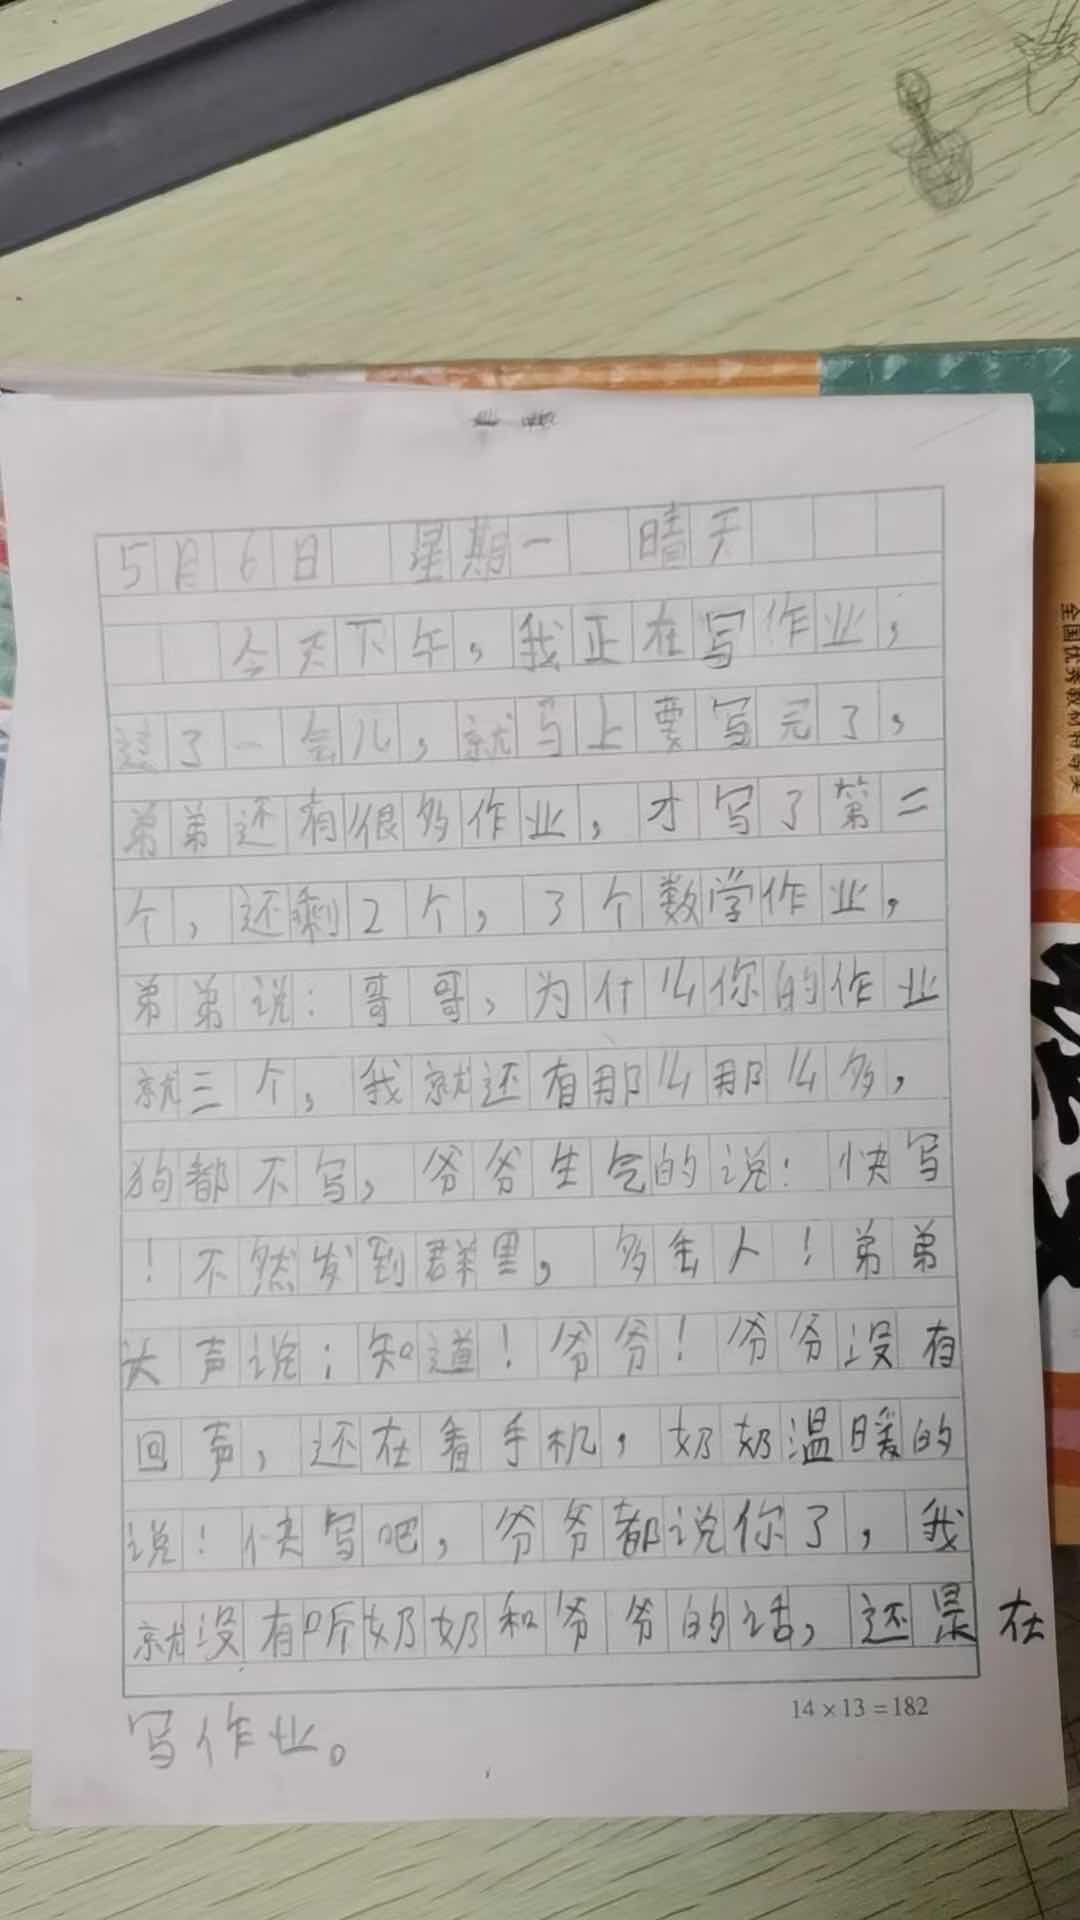 5月6日 星期一 晴天
今天下午，我正在写作业，
过了一会儿，就马上要写完了，
弟弟还有很多作业，才写了第二
个，还剩2个，3个数学作业，
弟弟说：哥哥，为什么你的作业
就三个，我就还有那么那么多，
狗都不写，爷爷生气的说：快写
！不然发到群里，多丢人！弟弟
大声说：知道！爷爷！爷爷没有
回声，还在看手机，奶奶温暖的
说：快写吧，爷爷都说你了，我
就没有听奶奶和爷爷的话，还是在
写作业。
14×13=182